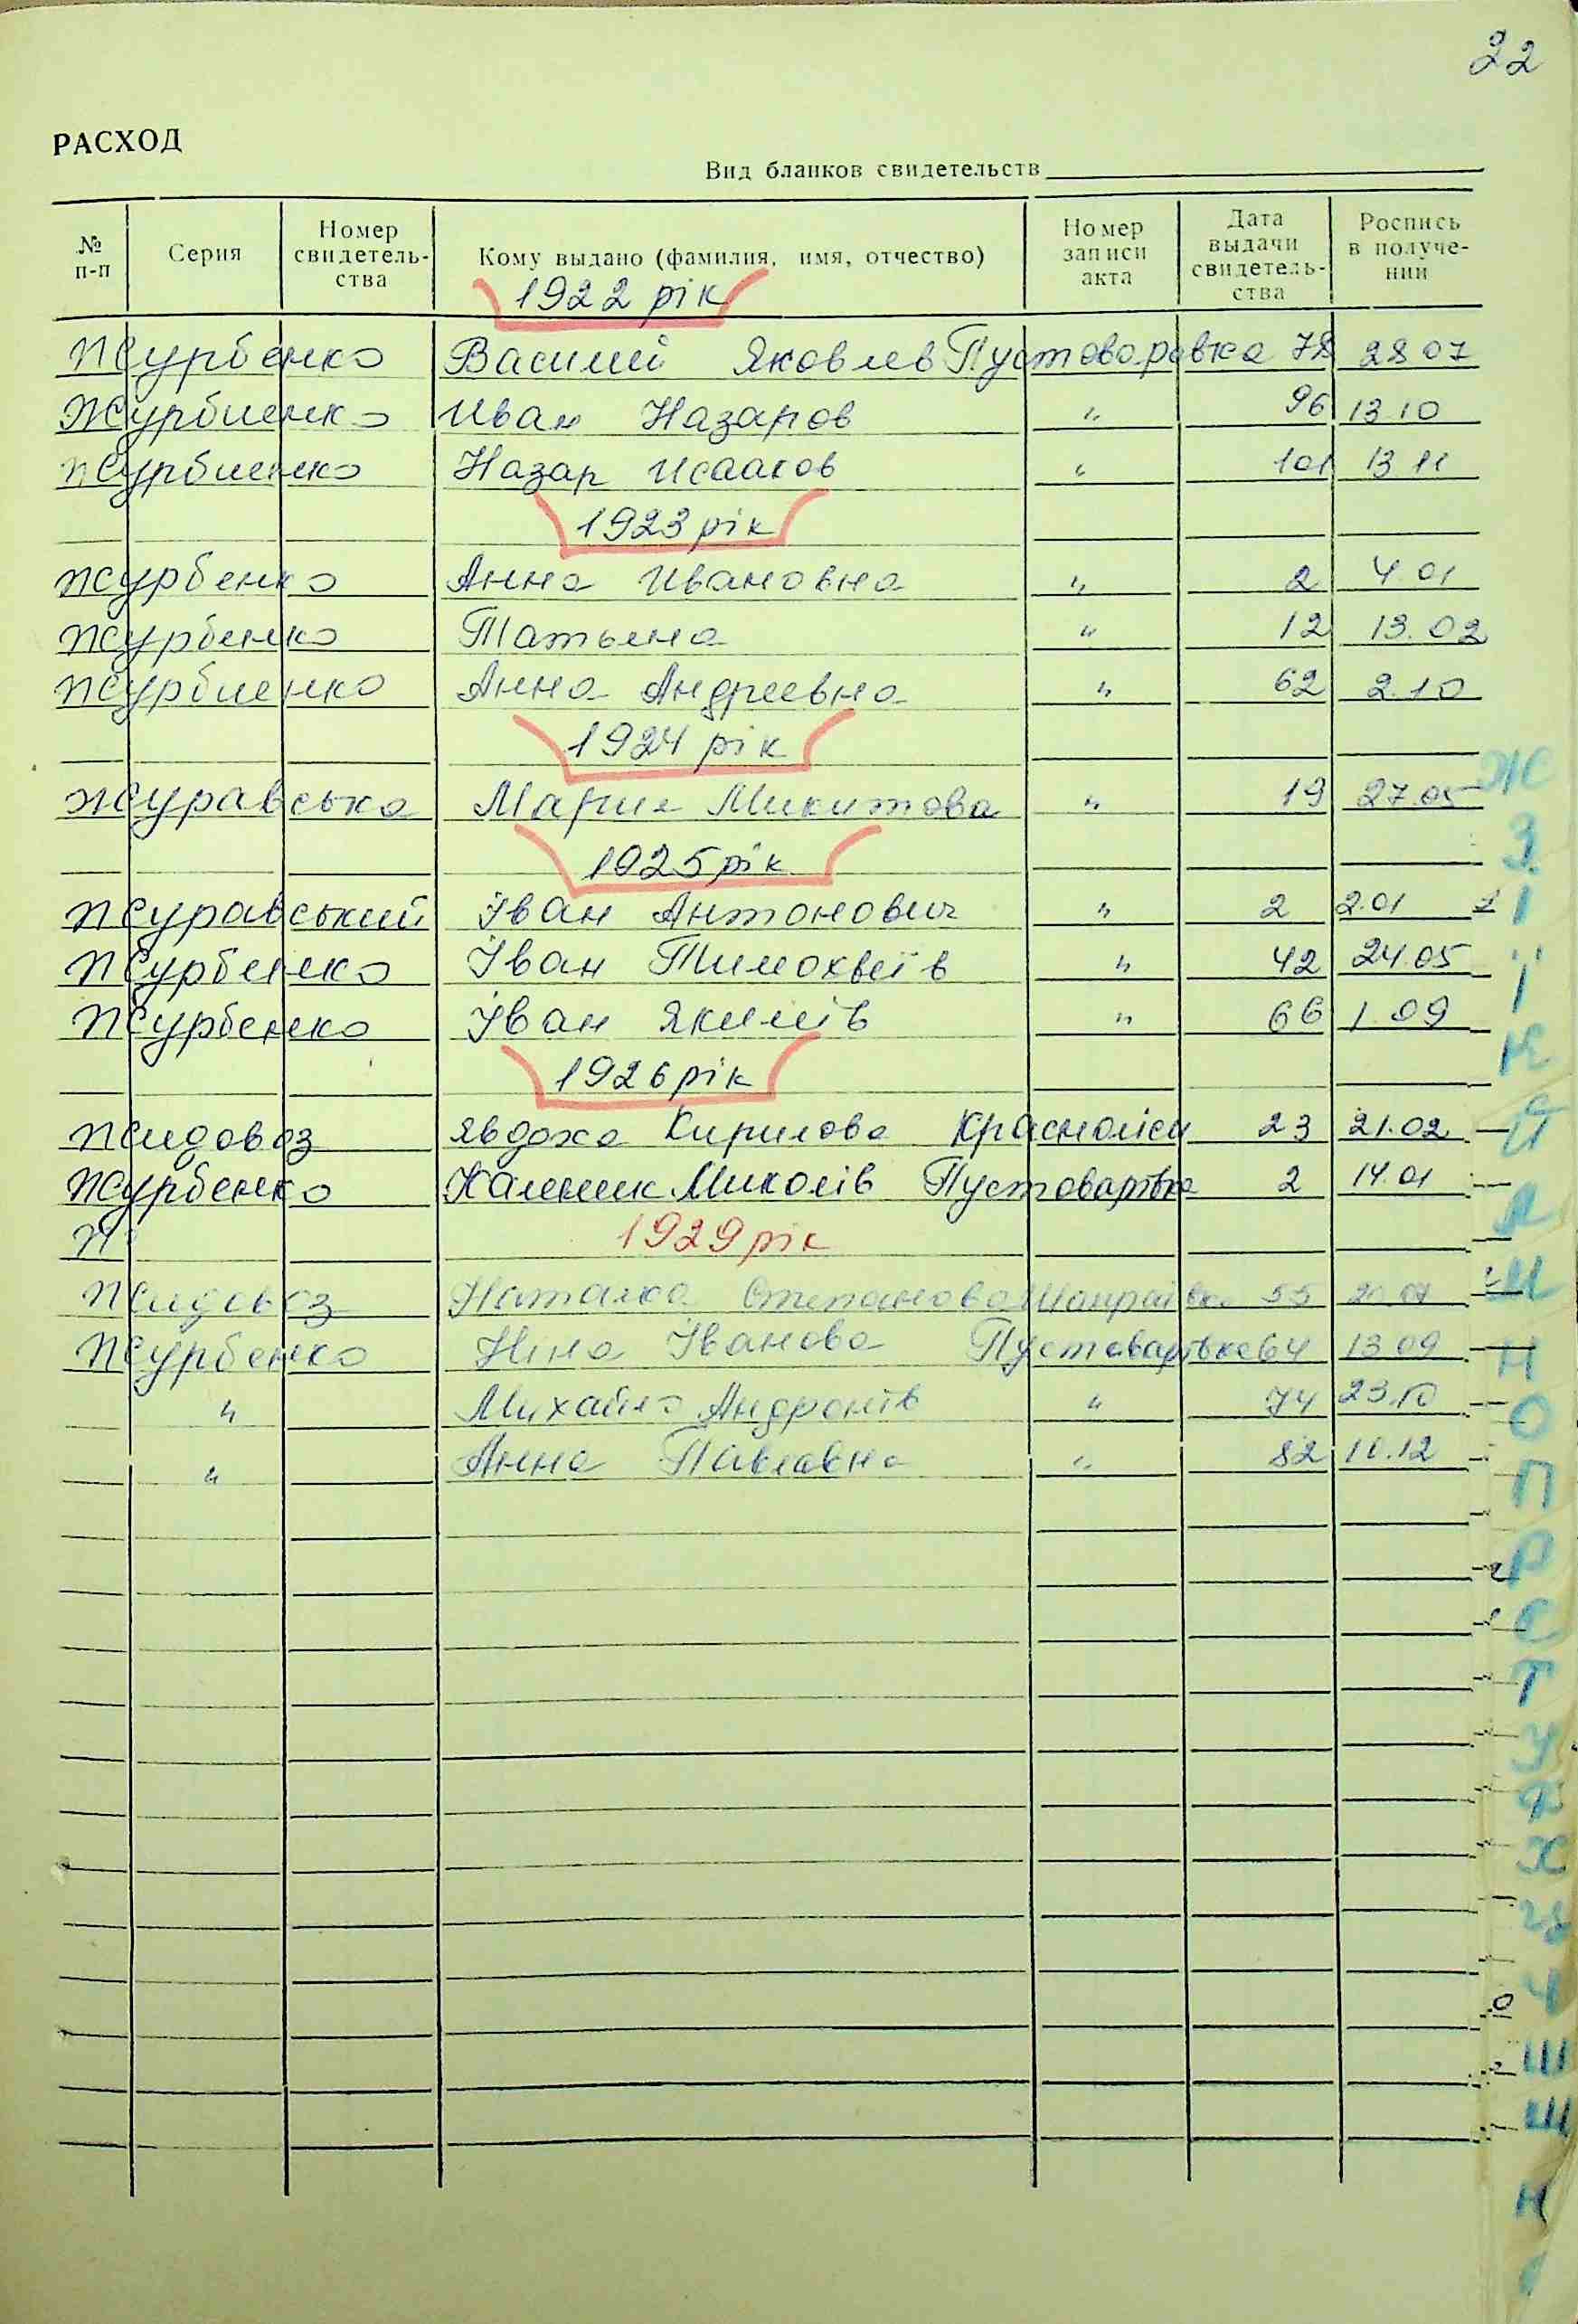 22
РАСХОД
Вид бланков свидетельств
№ п-п Серия Номер свидетель-ства Кому выдано (фамилия, имя, отчество) Номер записи акта Дата выдачи свидетель-ства Роспись в получе-нии
1922 рік
Журбенко Василий Яковлев Пустоваровка 78 28 07
Журбиенко Иван Назаров " 96 13 10
Журбиенко Назар Исааков " 101 13 11
1923 рік
Журбенко Анна Ивановна " 2 4.01
Журбенко Татьяна " 12 13.02
Журбиенко Анна Андреевна " 62 2.10
1924 рік
Журавська Мария Микитова " 19 27.05
1925 рік
Журавський Іван Антонович " 2 2.01
Журбенко Іван Тимохвіїв " 42 24.05
Журбенко Іван Якимів " 66 1.09
1926 рік
Жидовоз Явдоха Кирилова Краснолісы 23 21.02
Журбенко Каленик Миколів Пустоварівка 2 14.01
Ж 1929 рік
Жидовоз Наталка Степанова 55
Журбенко Ніна Іванова Пустоварівка 64 13 09
" Михайло Андронів " 74 23.10
" Анна Павлавна " 82 11.12
Ж
З
І
Ї
К
Й
Л
М
Н
О
П
Р
С
Т
У
Ф
Х
Ч
Ш
Щ